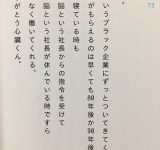 73
いうブラック企業にずっとついてきてく
がもらえるのは早くても80年後か90年後
寝ている時も
脳という社長からの指令を受けて
脳という社長が休んでいる時ですら
なく働いてくれる。
がとう心臓くん。